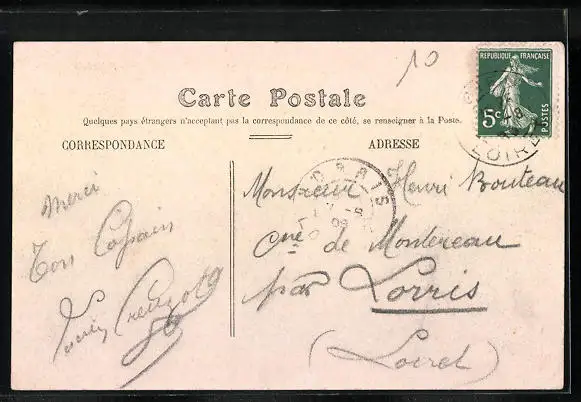 10
Carte Postale
Quelques pays étrangers n'acceptant pas la correspondance de ce côté, se renseigner à la Poste.
CORRESPONDANCE
ADRESSE
REPUBLIQUE FRANÇAISE
5c
POSTES
LOIRET
Merci
Ton Copain
Monsieur Henri Bouteau
Cne de Montereau
par Lorris
(Loiret)